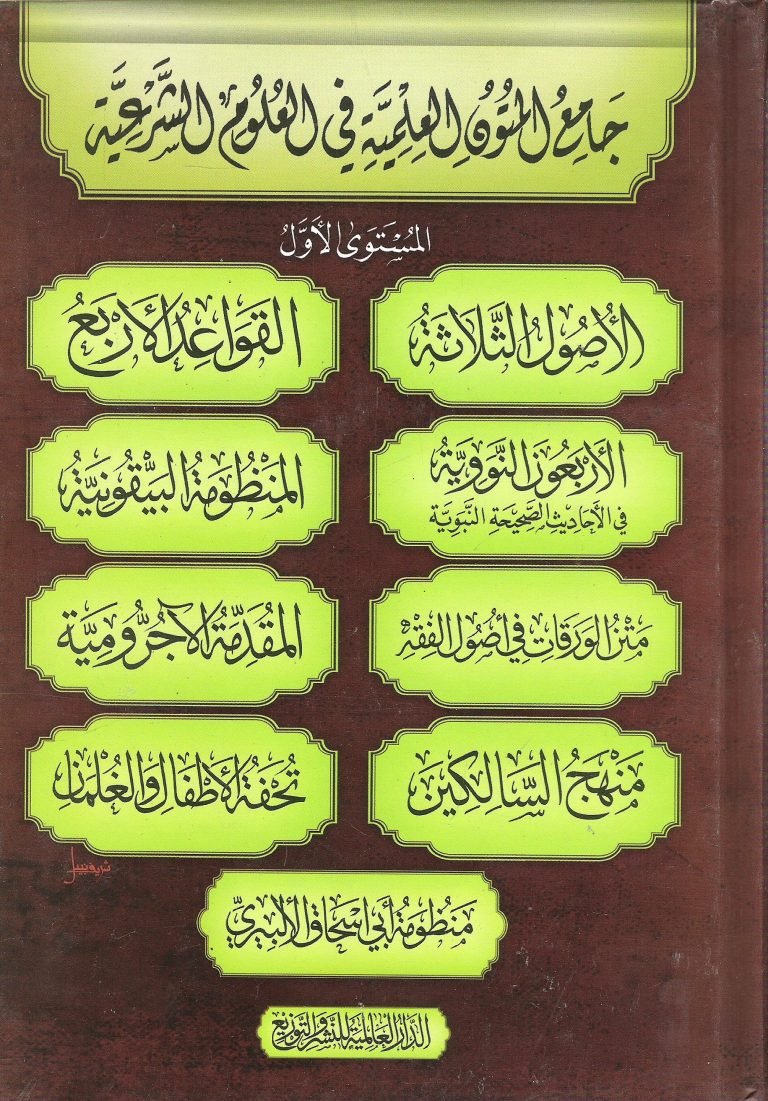 جَامِعُ المُتُونِ العِلْمِيَّةِ فِي العُلُومِ الشَّرْعِيَّةِ
المُسْتَوَى الأَوَّلُ
الأُصُولُ الثَّلَاثَةُ
القَوَاعِدُ الأَرْبَعُ
الأَرْبَعُونَ النَّوَوِيَّةُ
فِي الأَحَادِيثِ الصَّحِيحَةِ النَّبَوِيَّةِ
المَنْظُومَةُ البَيْقُونِيَّةُ
مَتْنُ الوَرَقَاتِ فِي أُصُولِ الفِقْهِ
المُقَدِّمَةُ الآجُرُّومِيَّةُ
مَنْهَجُ السَّالِكِينَ
تُحْفَةُ الأَطْفَالِ وَالغُلْمَانِ
مَنْظُومَةُ أَبِي اسْحَاقَ الأَلْبِيرِيِّ
الدَّارُ العَالَمِيَّةُ لِلنَّشْرِ وَالتَّوْزِيعِ